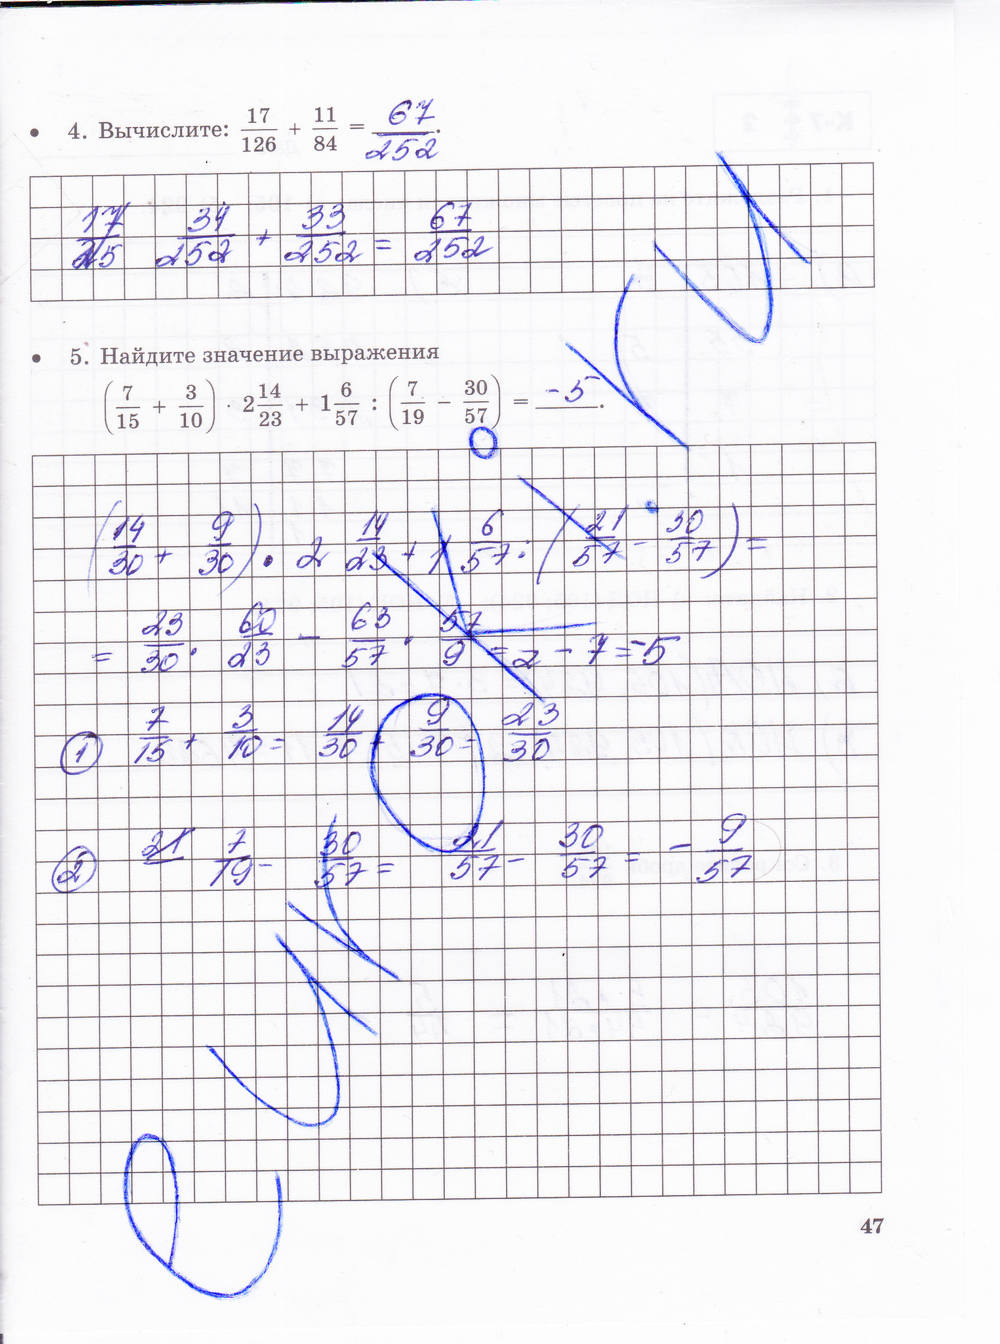 • 4. Вычислите: 17/126 + 11/84 = 67/252.
17/25 34/252 + 33/252 = 67/252
• 5. Найдите значение выражения
(7/15 + 3/10) · 2 14/23 + 1 6/57 : (7/19 − 30/57) = -5.
(14/30 + 9/30) · 2 14/23 + 1 6/57 : (21/57 - 30/57) =
= 23/30 · 60/23 - 63/57 · 57/9 = 2 - 7 = -5
① 7/15 + 3/10 = 14/30 + 9/30 = 23/30
② 21 7/19 - 30/57 = 21/57 - 30/57 = - 9/57
47